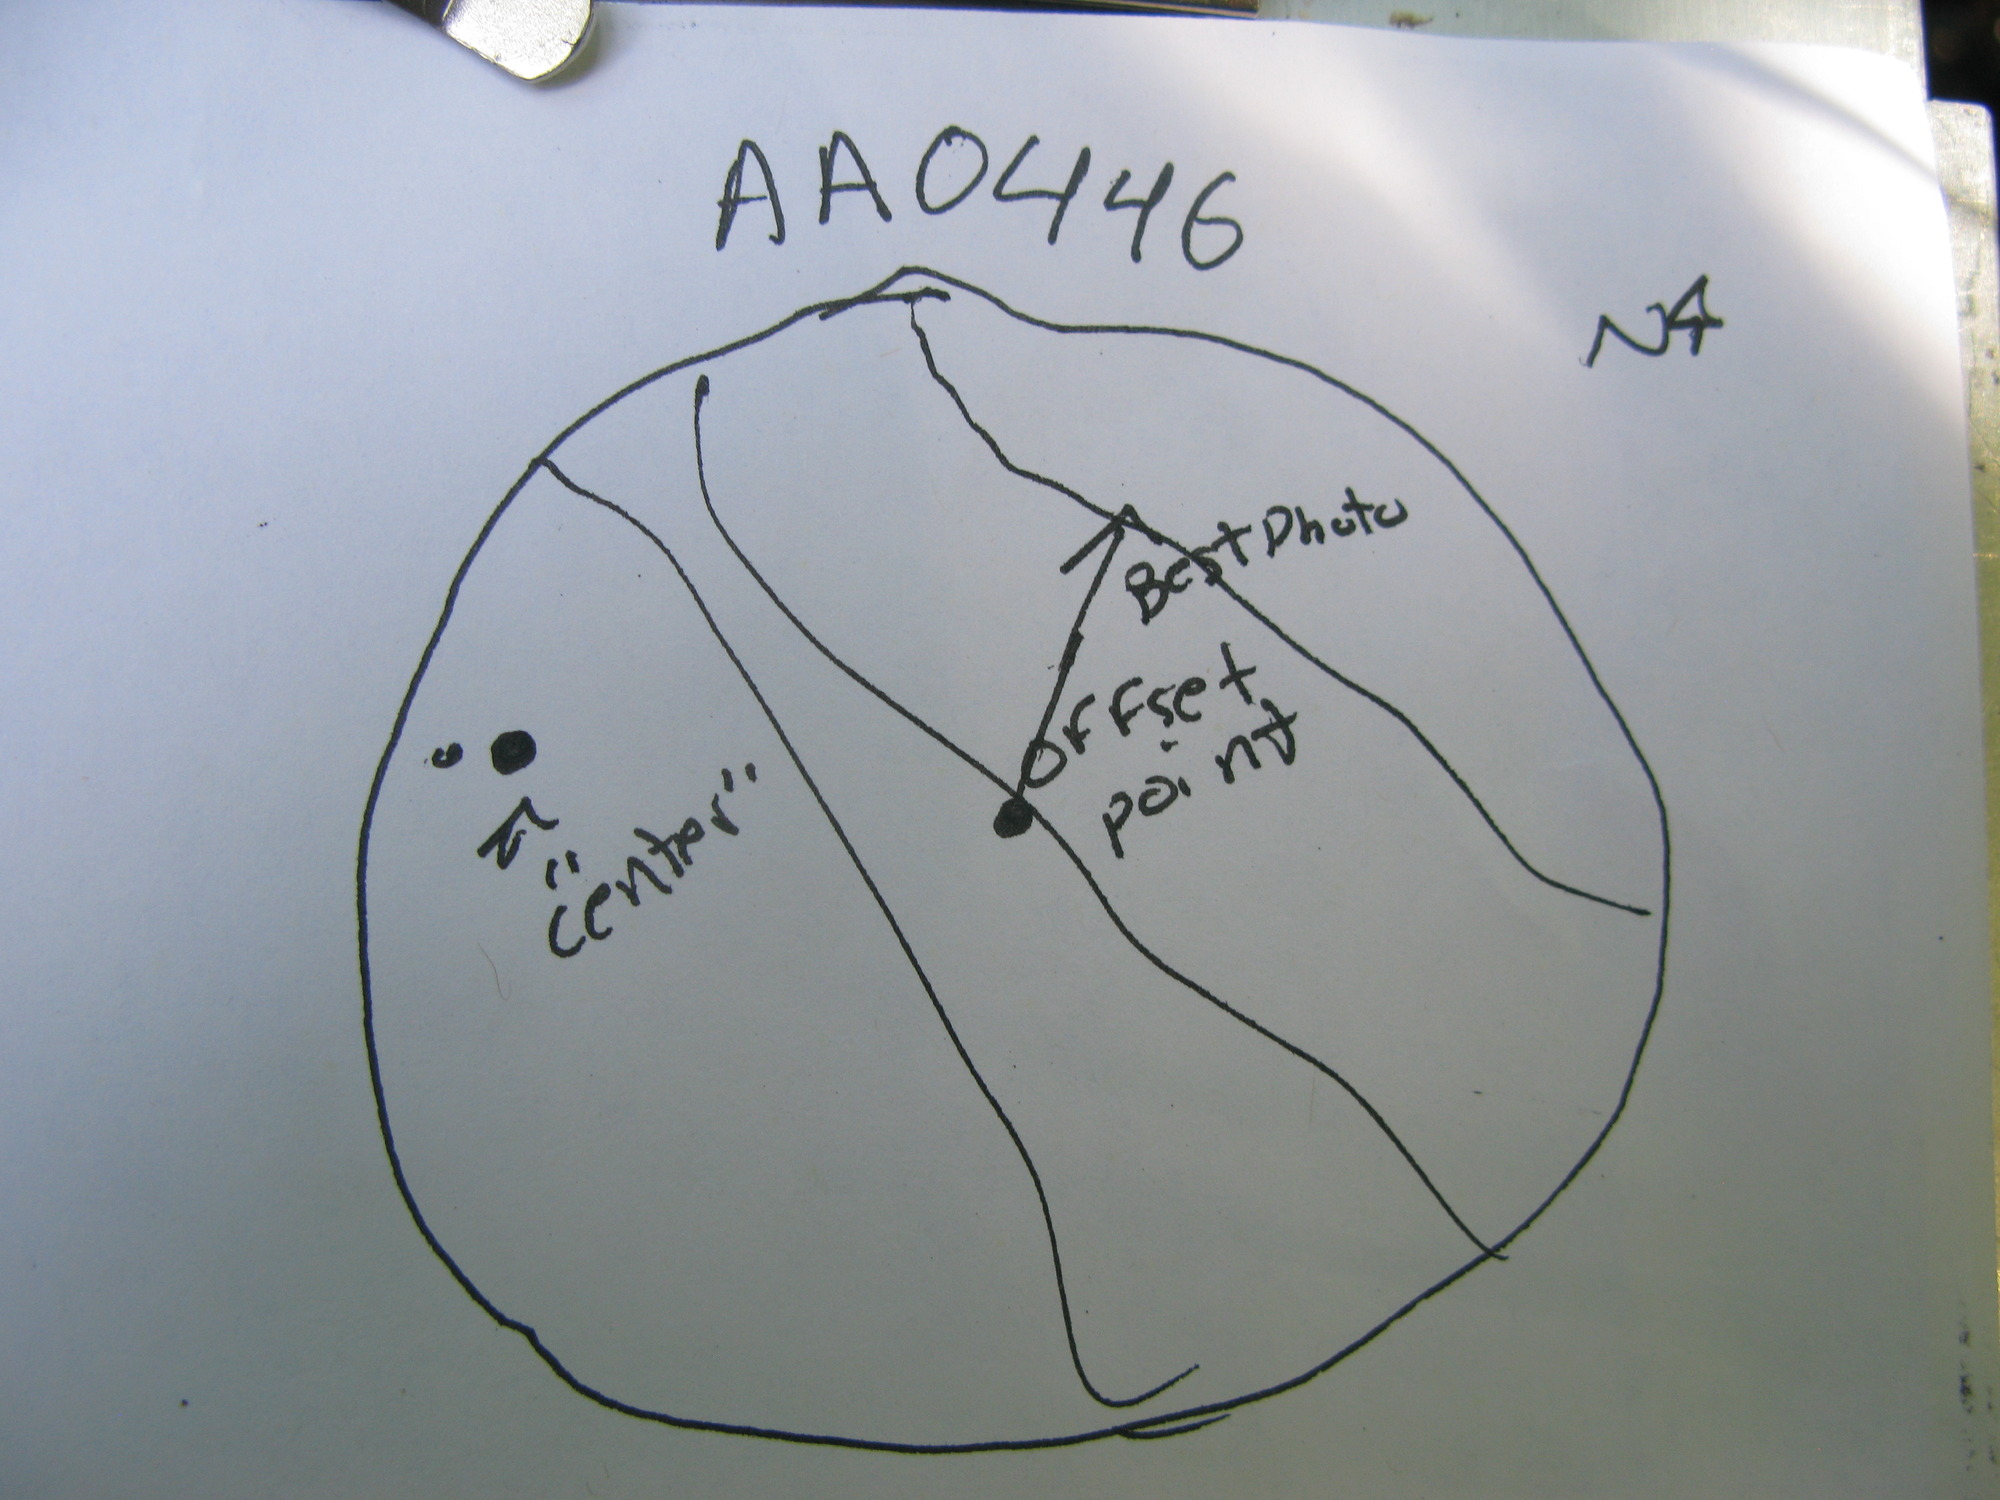 AA0446
N
Best Photo
Offset
point
"center"